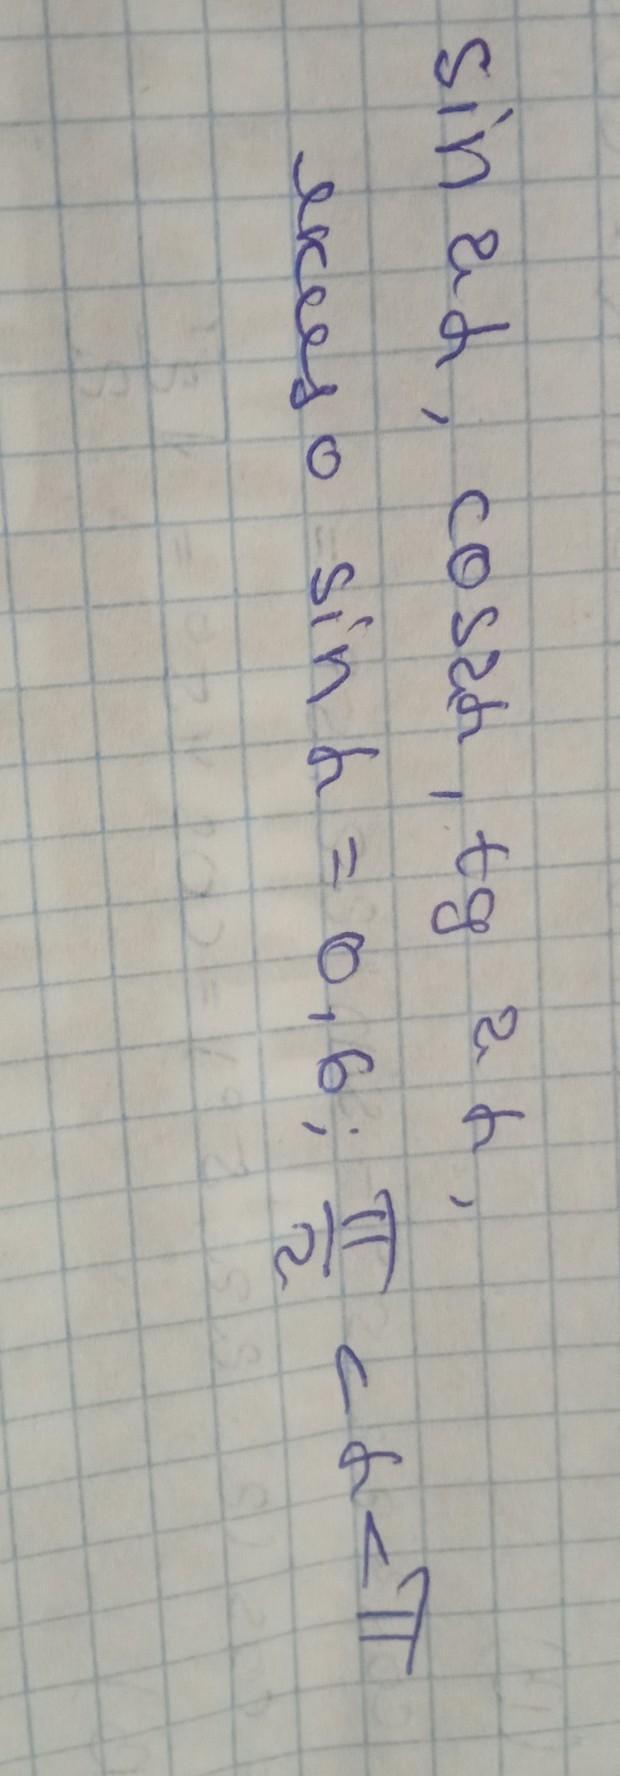 sin 2α, cos2α, tg 2α,
якщо sin α = 0,6; π/2 < α < π